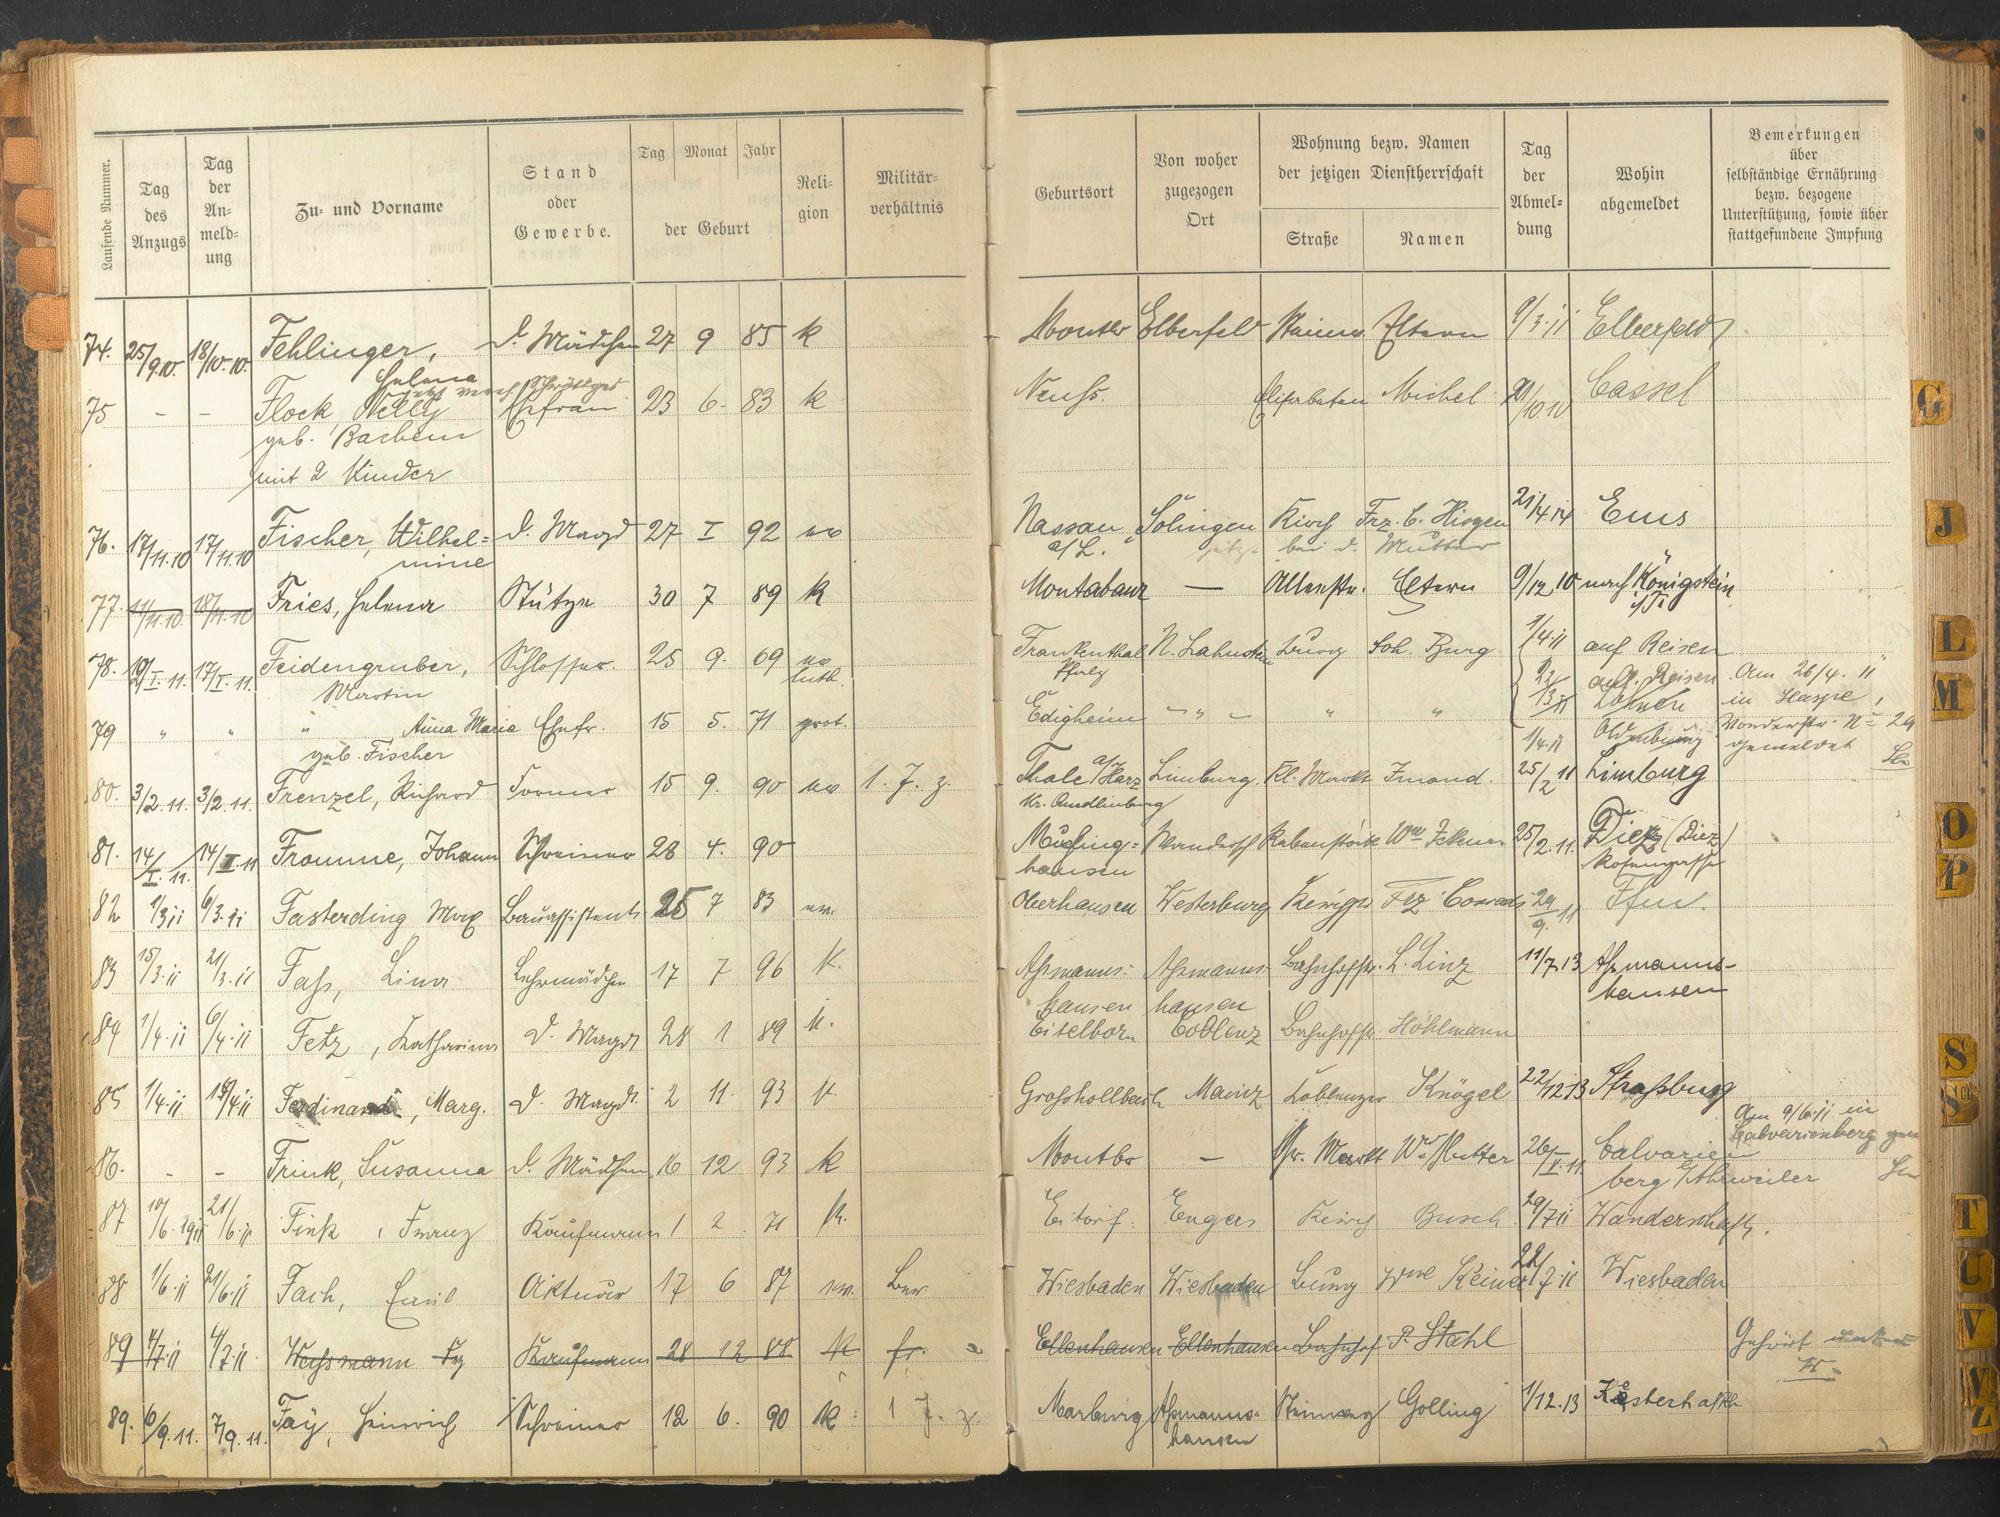 Laufende Nummer.
Tag des Anzugs
Tag der An-meld-ung
Zu- und Vorname
Stand oder Gewerbe.
Tag Monat Jahr
der Geburt
Reli-gion
Militär-verhältnis
Geburtsort
Von woher zugezogen Ort
Wohnung bezw. Namen der jetzigen Dienstherrschaft
Straße Namen
Tag der Abmel-dung
Wohin abgemeldet
Bemerkungen über selbständige Ernährung bezw. bezogene Unterstützung, sowie über stattgefundene Impfung
74. 25/9.10. 18/10.10. Fehlinger, d. Mädchen 27 9 85 k Montbr Elberfeld Eltern 9/3.11 Elberfeld
Helena
75 - - Flock Nelly Ehefrau 23 6. 83 k Neuß. Elisabethen Michel 10 10 Cassel
geb. Bachem
mit 2 Kinder
76. 17/11.10 17/11.10 Fischer, Wilhel= d. Magd 27 I 92 ev Nassau Solingen Kirch Frz. C. Hisgen 21/4.14 Ems
mine a/L. jetzt bei d. Mutter
77. 18/11.10 Fries, Helena Stütze 30 7 89 k Montabaur — Allerstr. Eltern 9/12.10 nach Königstein
i/T.
78. 17/I.11. Feidengruber, Schlosser. 25 9. 69 ev Frankenthal N. Lahnstein Burg Joh. Burg 1/4.11 auf Reisen
Martin luth. Pfalz auf Reisen Am 26/4. 11
in Haspe,
79 " " " Anna Maria Ehefr. 15 5. 71 prot. Edigheim - " - " " 1/4.11 Oldenburg N° 29
geb. Fischer gemeldet
80. 3/2.11. 3/2.11. Frenzel, Richard Former 15 9. 90 ev 1. J. z. Thale a/Harz Limburg. Kl. Markt Imand. 25/2 11 Limburg
Kr. Quedlinburg
81. 14/I.11. 14/II.11 Fromme, Johann Schreiner 28 4. 90 Rebenstock Wwe 25/2.11. Diez (Diez)
hausen Rosengasse
82 1/3.11 6/3.11 Fasterding Max Bauassistent 25 7 83 ev. Oberhausen Westerburg Frz Conradi 29/9.11 Ffm.
83 15/3.11 21/3.11 Faß, Lina Lehrmädchen 17 7 96 k. Aßmanns- Aßmanns- Bahnhofstr. L. Linz 11/7.13 Aßmanns-
hausen hausen hausen
84 1/4.11 6/4.11 Fetz, Katharina d. Magd 28 1 89 k. Eitelborn Coblenz Bahnhofstr. Höhlmann
85 1/4.11 18/4.11 Ferdinand, Marg. d. Magd. 2 11. 93 k. Großhollbach Mainz Coblenzer Knögel 22/12.13 Straßburg
Am 9/6.11 in
Calvarienberg gem
86. - - Frink, Susanna d. Mädchen 16 12 93 k Montbr — Gr. Markt Ww Mutter 26/V.11. Calvarien
berg b/Ahrweiler
87 10/6.1911 21/6.11 Fink, Franz Kaufmann 1 2 71 k. Eitorf. Engers Kirch Busch 29/7 11 Wanderschaft.
88 1/6.11 21/6.11 Fach, Emil Aktuar 17 6 87 ev. Wiesbaden Wiesbaden Burg Wwe 22/7 11 Wiesbaden
89 4/7.11 4/7.11. Weßmann Kaufmann 28 12 88 k fr. Ellenhausen Ellenhausen Bahnhof P. Stahl Gehört unter
W.
89. 6/9.11. 7/9.11. Fay, Heinrich Schreiner 12 6. 90 k. 1 J. z. Marburg Aßmanns- Steinweg Golling 1/12.13
hausen
G
J
L
M
O
P
S
Sch
T
U
V
W
Z